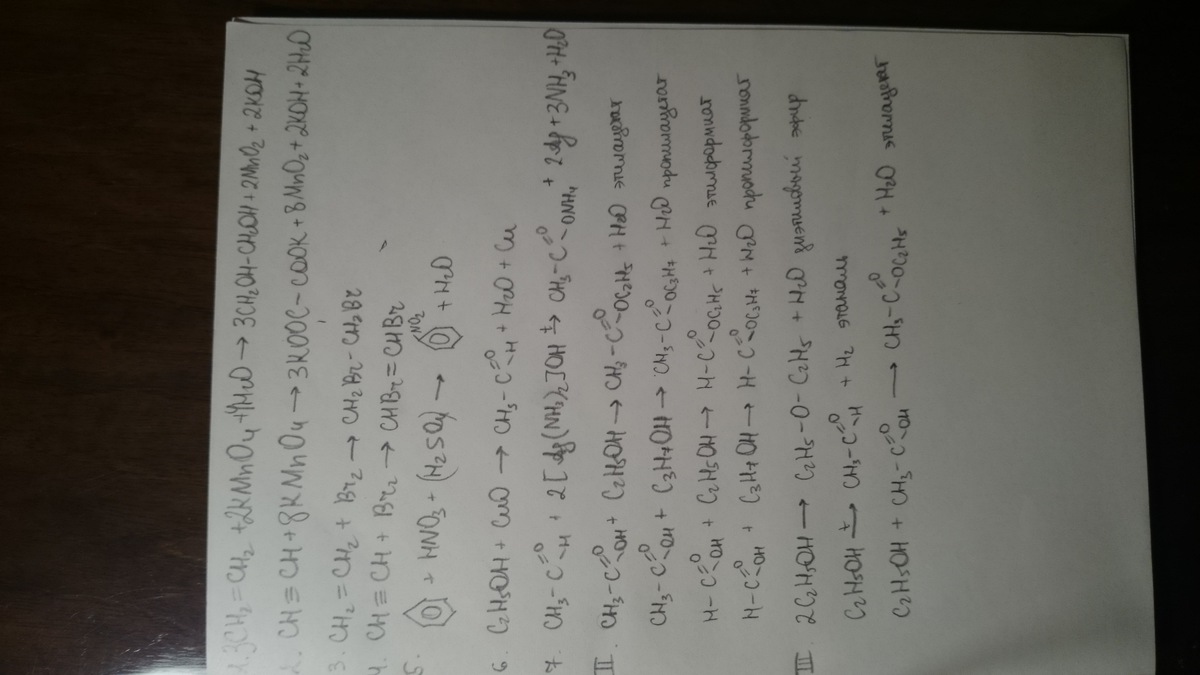 1. 3CH2=CH2 + 2KMnO4 + 4H2O → 3CH2OH-CH2OH + 2MnO2 + 2KOH
2. CH≡CH + 8KMnO4 → 3KOOC-COOK + 8MnO2 + 2KOH + 2H2O
3. CH2=CH2 + Br2 → CH2Br-CH2Br
4. CH≡CH + Br2 → CHBr=CHBr
5. + HNO3 + (H2SO4) → NO2 + H2O
6. C2H5OH + CuO → CH3-C=O-H + H2O + Cu
7. CH3-C=O-H + 2[Ag(NH3)2]OH t→ CH3-C=O-ONH4 + 2Ag + 3NH3 + H2O
II. CH3-C=O-OH + C2H5OH → CH3-C=O-OC2H5 + H2O этилацетат
CH3-C=O-OH + C3H7OH → CH3-C=O-OC3H7 + H2O пропилацетат
H-C=O-OH + C2H5OH → H-C=O-OC2H5 + H2O этилформиат
H-C=O-OH + C3H7OH → H-C=O-OC3H7 + H2O пропилформиат
III. 2C2H5OH → C2H5-O-C2H5 + H2O диэтиловый эфир
C2H5OH t→ CH3-C=O-H + H2 этаналь
C2H5OH + CH3-C=O-OH → CH3-C=O-OC2H5 + H2O этилацетат